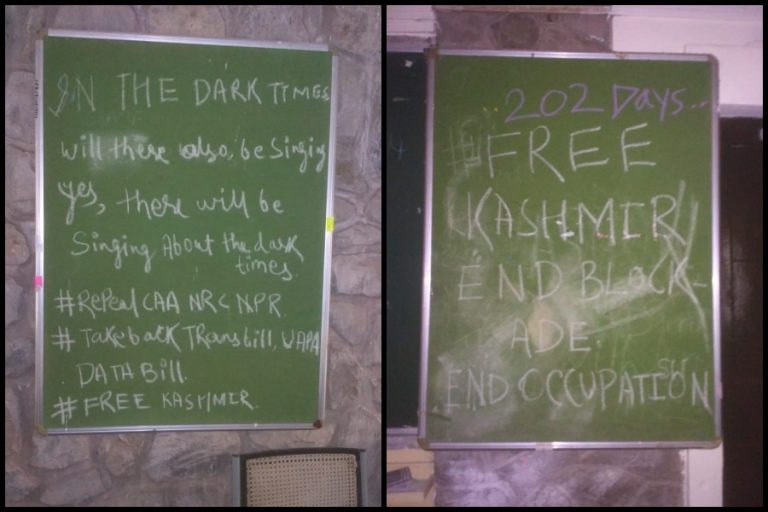 IN THE DARK TIMES
will there also, be singing
yes, there will be
singing About the dark
times.
#Repeal CAA NRC NPR.
# Take back Trans bill, UAPA
DATA Bill.
# FREE KASHMIR.
202 Days..
#FREE
KASHMIR
END BLOCK-
ADE.
END OCCUPATION